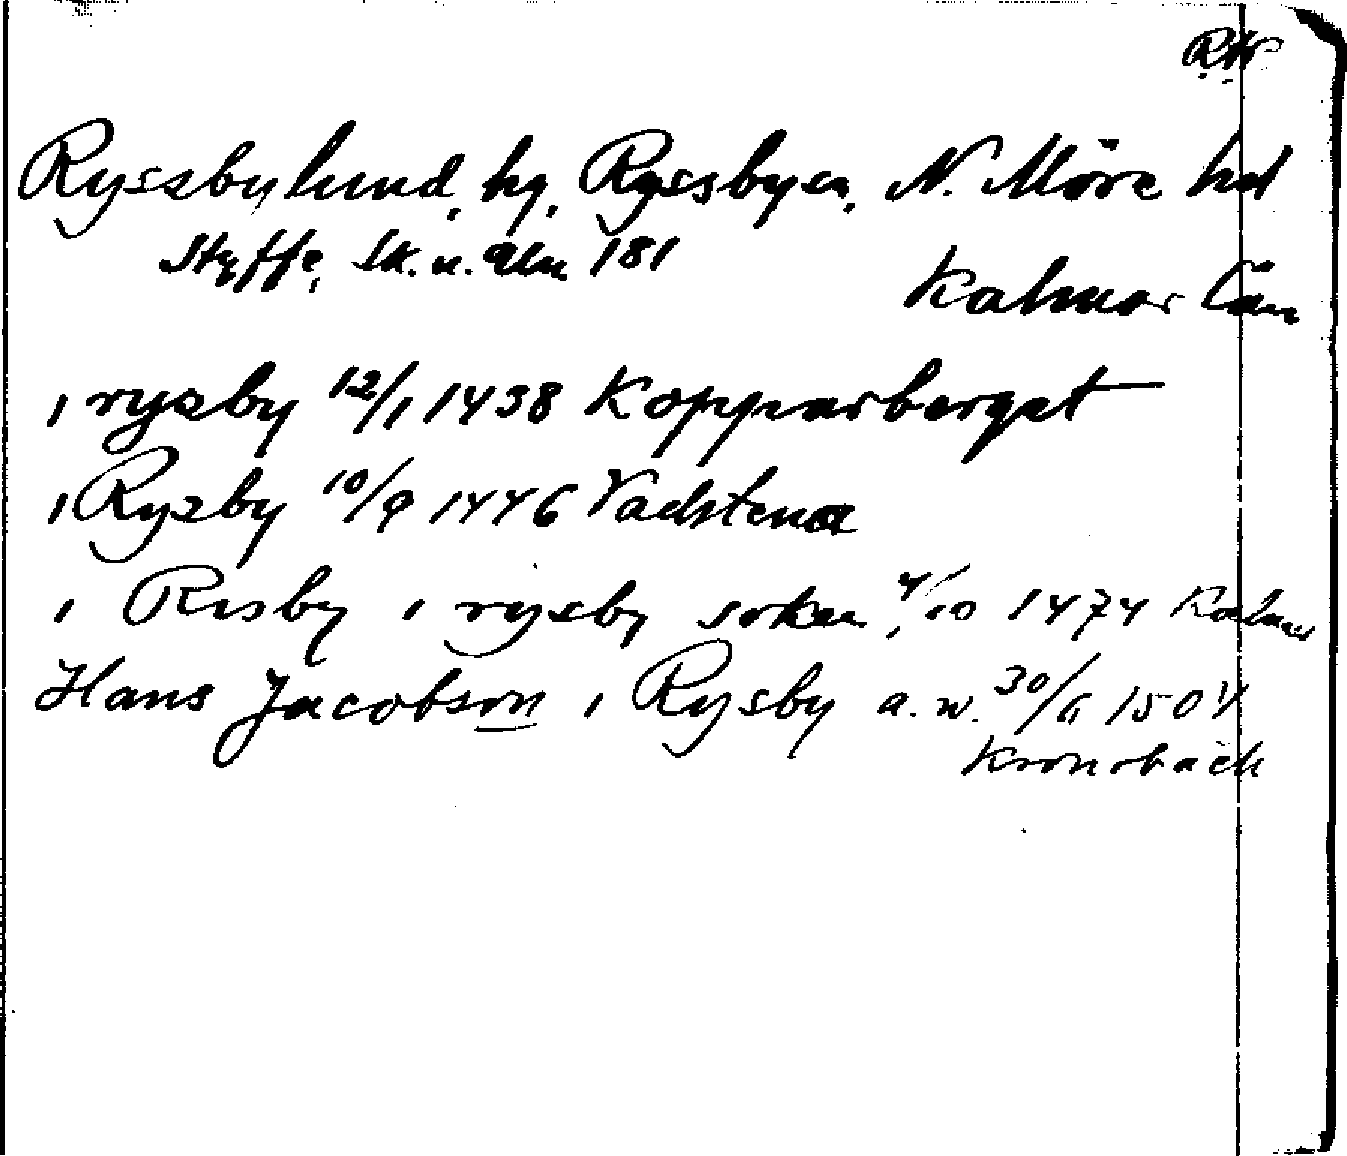 Ryssbylund, hg, Ryssbysn, N. Möre hd
Styffe, Sk. u. Un 181
Kalmar län
i rysby 12/1 1438 Kopparberget
i Rysby 10/9 1446 Vadstena
i Risby i rysby soken 4/10 1474 Kalmar
Hans Jacobson i Rysby a.w. 30/6 1504
Kronobäck